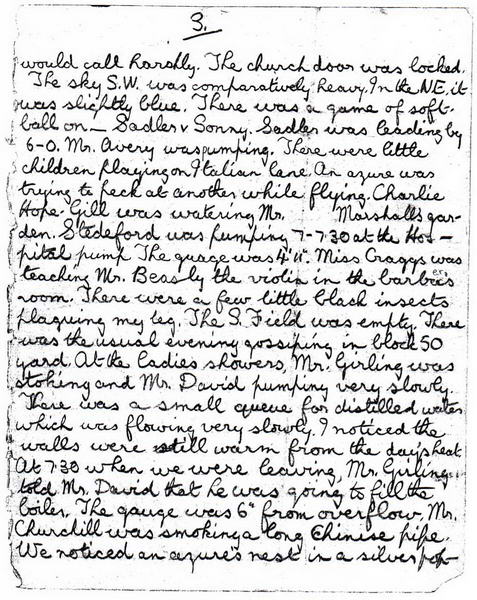 3.
would call harshly. The church door was locked.
The sky S.W. was comparatively heavy. In the NE, it
was slightly blue. There was a game of soft-
ball on - Sadler v Sonny. Sadler was leading by
6-0. Mr. Avery was pumping. There were little
children playing on Italian lane. An azure was
trying to peck at another while flying. Charlie
Hope-Gill was watering Mr. Marshall's gar-
den. Stedeford was pumping 7-7.30 at the Hos-
pital pump. The guage was 4'11". Miss Craggs was
teaching Mr. Beasly the violin in the barber's
room. There were a few little black insects
plaguing my leg. The S. Field was empty. There
was the usual evening gossiping in block 50
yard. At the ladies showers, Mr. Girling was
stoking and Mr. David pumping very slowly.
There was a small queue for distilled water
which was flowing very slowly. I noticed the
walls were still warm from the day's heat.
At 7.30 when we were leaving, Mr. Girling
told Mr. David that he was going to fill the
boiler. The gauge was 6" from overflow. Mr.
Churchill was smoking a long Chinise pipe.
We noticed an azure's nest in a silver pop-